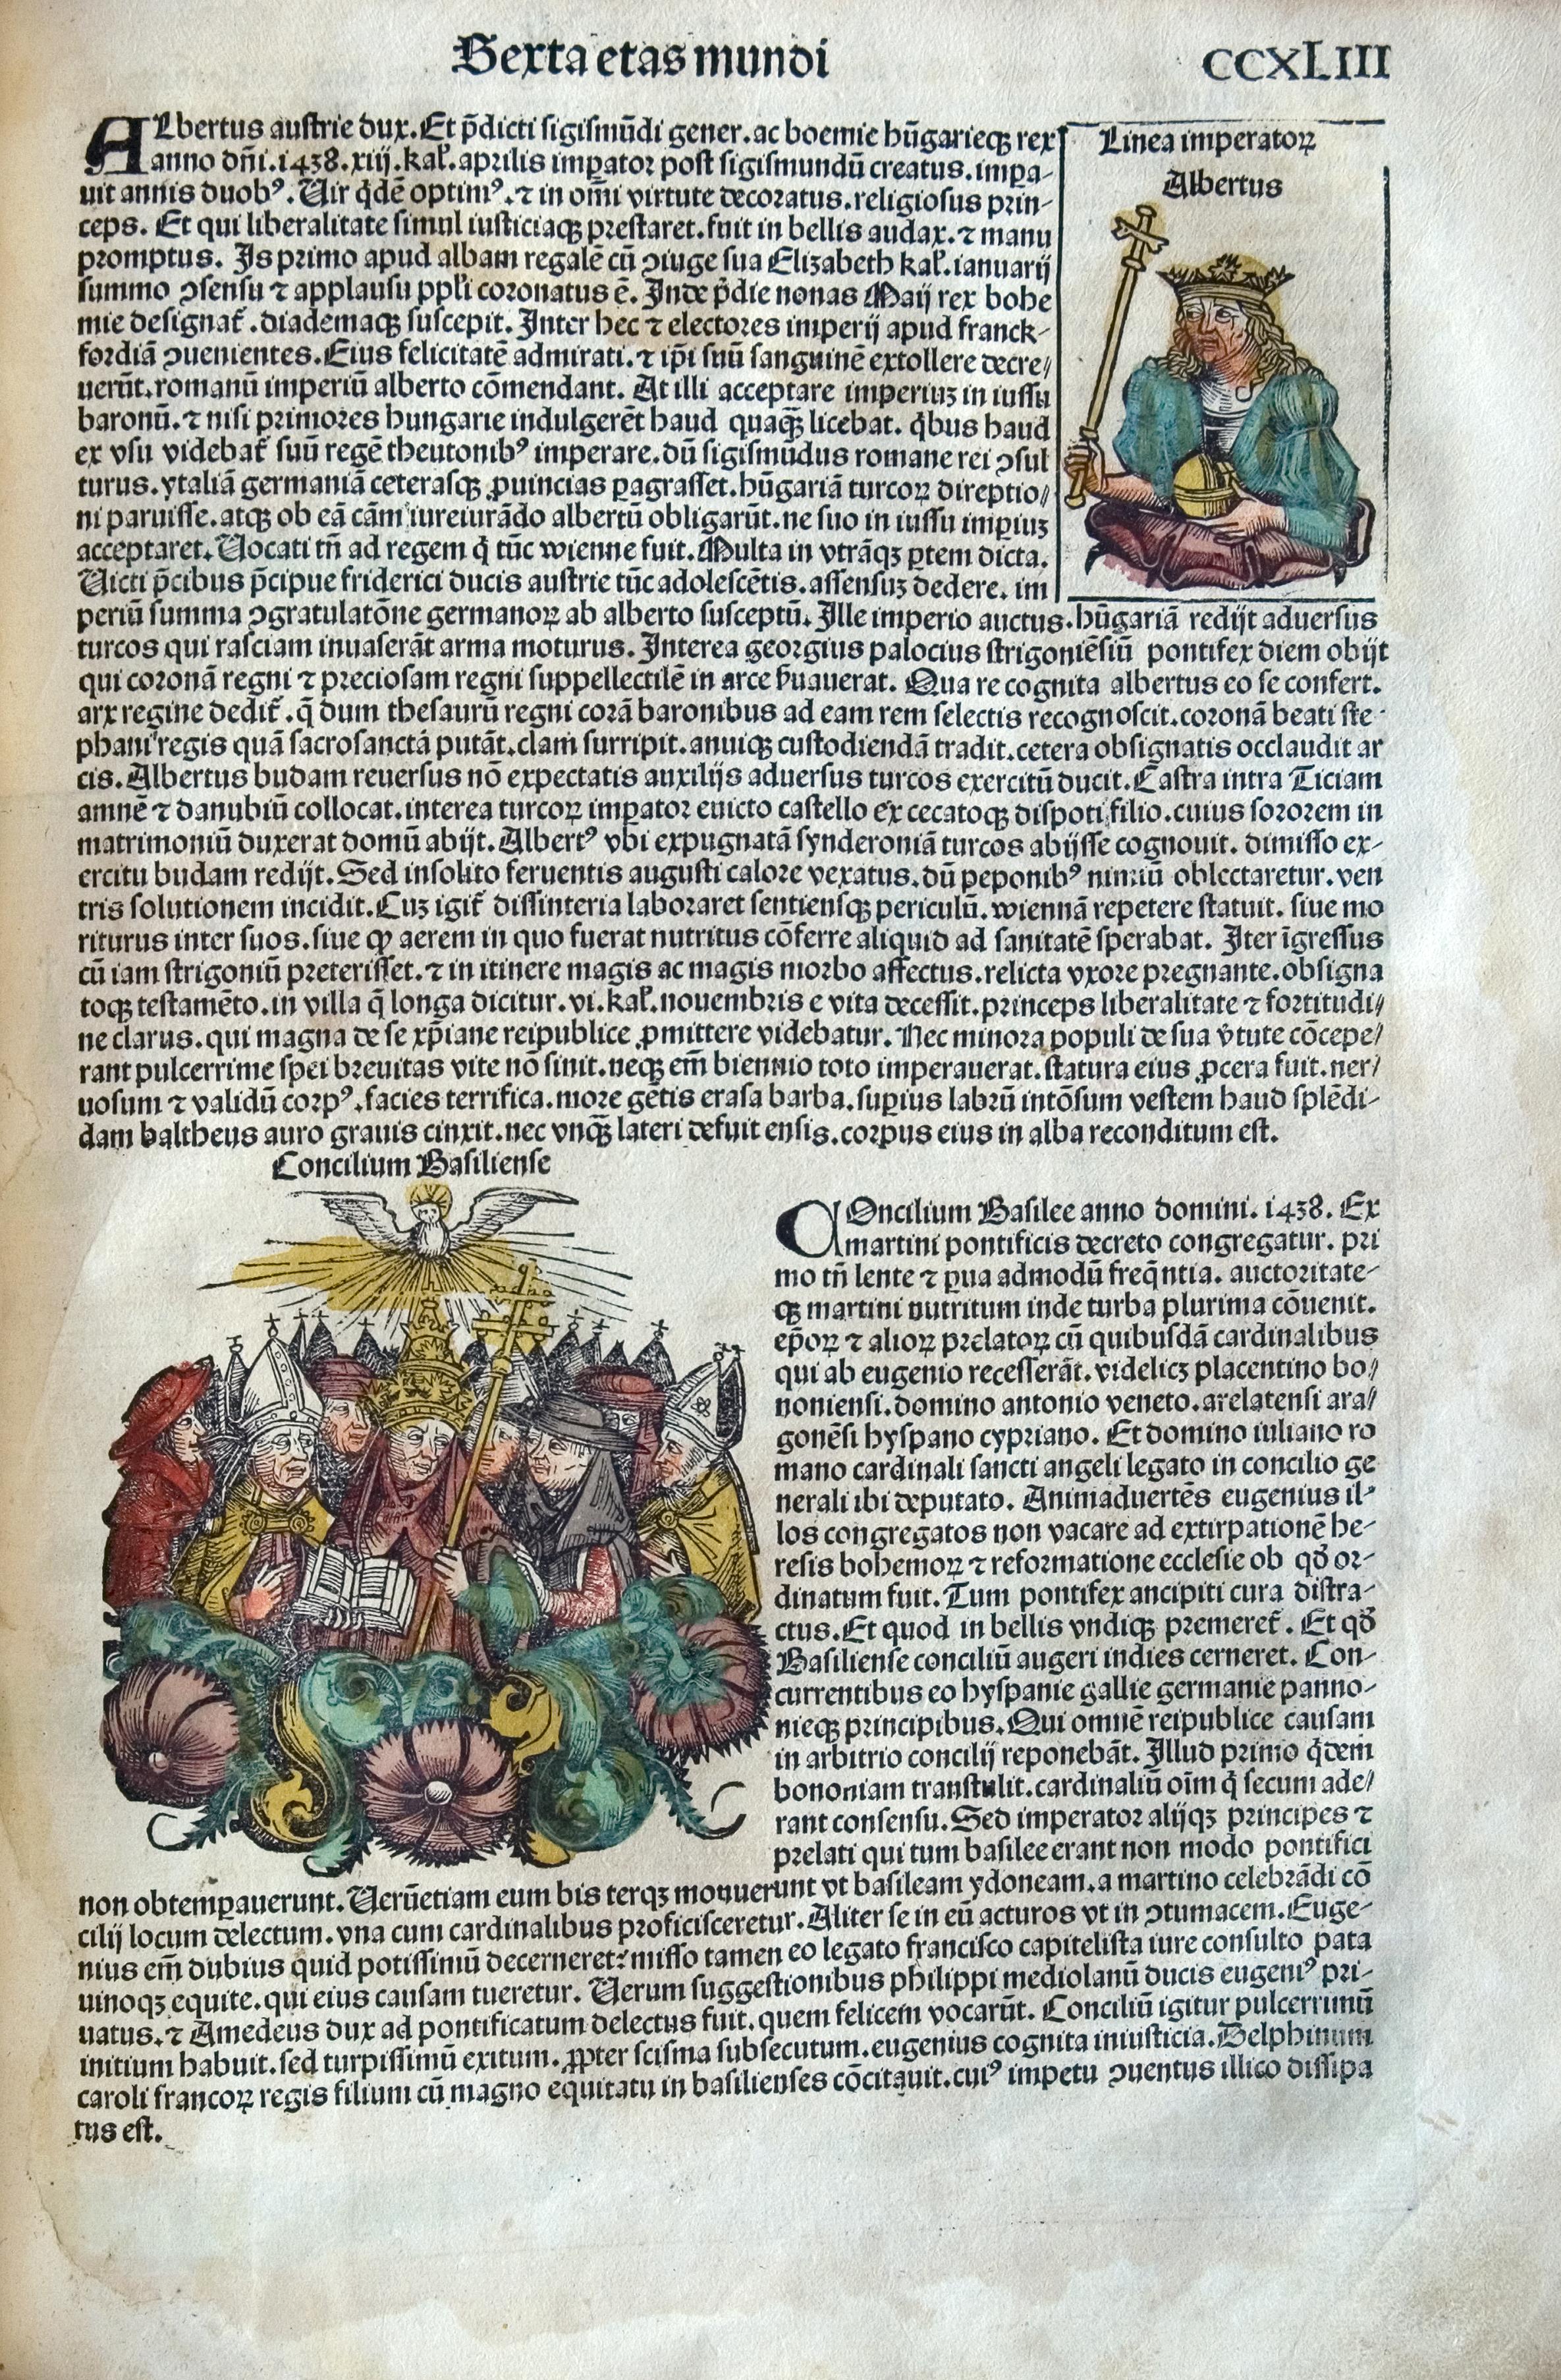 Sexta etas mundi
CCXLIII
ALbertus austrie dux. Et p̄dicti sigismūdi gener. ac boemie hūgarieqꝫ rex
anno dn̄i. 1438. xiij. kal̛. aprilis imꝑator post sigismundū creatus. imꝑa-
uit annis duobꝰ. Uir q̇dē optimꝰ. ⁊ in om̄i virtute decoratus. religiosus prin-
ceps. Et qui liberalitate simul iusticiaqꝫ prestaret. fuit in bellis audax. ⁊ manu
promptus. Is primo apud albam regalē cū ꝯiuge sua Elizabeth kal̛. ianuarij
summo ꝯsensu ⁊ applausu ppl̛i coronatus ē. Inde p̄die nonas Maij rex bohe
mie designat̛. diademaqꝫ suscepit. Inter hec ⁊ electores imperij apud franck-
fordiā ꝯuenientes. Eius felicitatē admirati. ⁊ ip̄i suū sanguinē extollere decre/
uerūt. romanū imperiū alberto cōmendant. At illi acceptare imperiuꝫ in iussu
baronū. ⁊ nisi primores hungarie indulgerēt haud quaqꝫ̄ licebat. q̇bus haud
ex vsu videbat̛ suū regē theutonibꝰ imperare. dū sigismūdus romane rei ꝯsul
turus. ytaliā germaniā ceterasqꝫ ꝓuincias ꝑagrasset. hūgariā turcoꝝ direptio/
ni paruisse. atqꝫ ob eā cām iureiurādo albertū obligarūt. ne suo in iussu imꝑiuꝫ
acceptaret. Uocati tn̄ ad regem q̇ tūc wienne fuit. Multa in vtrāqꝫ ꝑtem dicta.
Uicti p̄cibus p̄cipue friderici ducis austrie tūc adolescētis. assensuꝫ dedere. im
periū summa ꝯgratulatōne germanoꝝ ab alberto susceptū. Ille imperio auctus. hūgariā redijt aduersus
turcos qui rasciam inuaserāt arma moturus. Interea georgius palocius strigoniēsiū pontifex diem obijt
qui coronā regni ⁊ preciosam regni suppellectilē in arce ẜuauerat. Qua re cognita albertus eo se confert.
arx regine dedit̛. q̄ dum thesaurū regni corā baronibus ad eam rem selectis recognoscit. coronā beati ste-
phani regis quā sacrosanctā putāt. clam surripit. anuiqꝫ custodiendā tradit. cetera obsignatis occlaudit ar
cis. Albertus budam reuersus nō expectatis auxilijs aduersus turcos exercitū ducit. Castra intra Ticiam
amnē ⁊ danubiū collocat. interea turcoꝝ imꝑator euicto castello ex cecatoqꝫ dispoti filio. cuius sororem in
matrimoniū duxerat domū abijt. Albertꝰ vbi expugnatā synderoniā turcos abijsse cognouit. dimisso ex-
ercitu budam redijt. Sed insolito feruentis augusti calore vexatus. dū peponibꝰ nimiū oblectaretur. ven
tris solutionem incidit. Cuꝫ igit̛ dissinteria laboraret sentiensqꝫ periculū. wiennā repetere statuit. siue mo
riturus inter suos. siue ꝙ aerem in quo fuerat nutritus cōferre aliquid ad sanitatē sperabat. Iter īgressus
cū iam strigoniū preterisset. ⁊ in itinere magis ac magis morbo affectus. relicta vxore pregnante. obsigna
toqꝫ testamēto. in villa q̄ longa dicitur. vi. kal̛. nouembris e vita decessit. princeps liberalitate ⁊ fortitudi/
ne clarus. qui magna de se xp̄iane reipublice ꝓmittere videbatur. Nec minora populi de sua v̛tute cōcepe/
rant pulcerrime spei breuitas vite nō sinit. neqꝫ em̄ biennio toto imperauerat. statura eius ꝓcera fuit. ner/
uosum ⁊ validū corpꝰ. facies terrifica. more gētis erasa barba. suꝑius labrū intōsum vestem haud splēdi-
dam baltheus auro grauis cinxit. nec vnqꝫ̄ lateri defuit ensis. corpus eius in alba reconditum est.
Linea imperatoꝝ
Albertus
Concilium Basiliense
COncilium Basilee anno domini. 1438. Ex
martini pontificis decreto congregatur. pri
mo tn̄ lente ⁊ ꝑua admodū freq̄ntia. auctoritate-
qꝫ martini nutritum inde turba plurima cōuenit.
ep̄oꝝ ⁊ alioꝝ prelatoꝝ cū quibusdā cardinalibus
qui ab eugenio recesserāt. videlicꝫ placentino bo/
noniensi. domino antonio veneto. arelatensi ara/
gonēsi hyspano cypriano. Et domino iuliano ro
mano cardinali sancti angeli legato in concilio ge
nerali ibi deputato. Animaduertēs eugenius il-
los congregatos non vacare ad extirpationē he-
resis bohemoꝝ ⁊ reformatione ecclesie ob qđ or-
dinatum fuit. Tum pontifex ancipiti cura distra-
ctus. Et quod in bellis vndiqꝫ premeret̛. Et qđ
Basiliense conciliū augeri indies cerneret. Con-
currentibus eo hyspanie gallie germanie panno-
nieqꝫ principibus. Qui omnē reipublice causam
in arbitrio concilij reponebāt. Illud primo q̇dem
bononiam transtulit. cardinaliū oīm q̇ secum ade/
rant consensu. Sed imperator alijqꝫ principes ⁊
prelati qui tum basilee erant non modo pontifici
non obtemꝑauerunt. Uerūetiam eum bis terqꝫ monuerunt vt basileam ydoneam. a martino celebrādi cō
cilij locum delectum. vna cum cardinalibus proficisceretur. Aliter se in eū acturos vt in ꝯtumacem. Euge-
nius em̄ dubius quid potissimū decerneret: misso tamen eo legato francisco capitelista iure consulto pata
uinoqꝫ equite. qui eius causam tueretur. Uerum suggestionibus philippi mediolanū ducis eugeniꝰ pri-
uatus. ⁊ Amedeus dux ad pontificatum delectus fuit. quem felicem vocarūt. Conciliū igitur pulcerrimū
initium habuit. sed turpissimū exitum. ꝓpter scisma subsecutum. eugenius cognita iniusticia. Delphinum
caroli francoꝝ regis filium cū magno equitatu in basilienses cōcitauit. cuiꝰ impetu ꝯuentus illico dissipa
tus est.